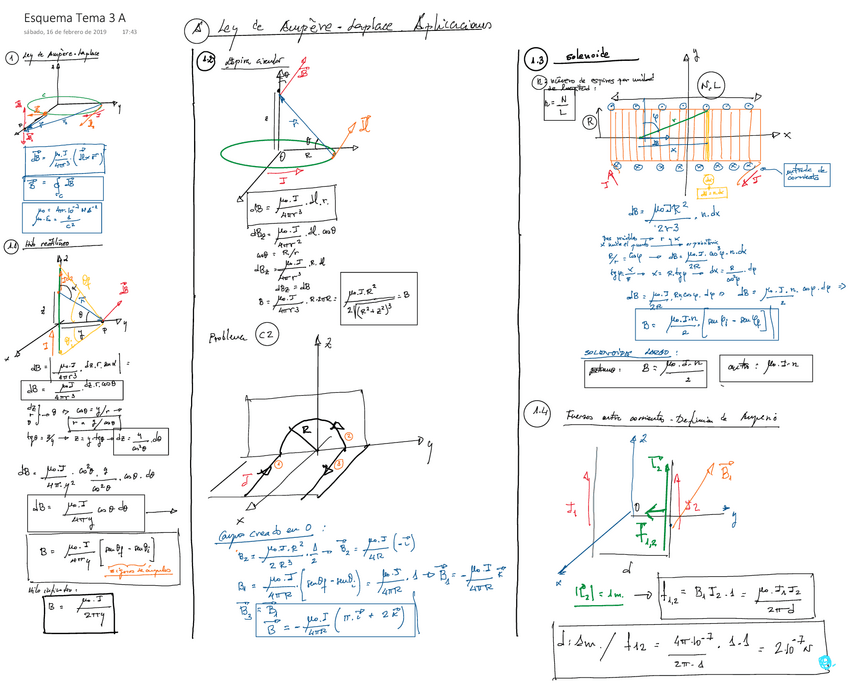 Esquema Tema 3 A
sábado, 16 de febrero de 2019 17:43
A Ley de Ampère-Laplace. Aplicaciones
1 Ley de Ampère-Laplace
z
y
x
dB = μ₀.I/4πr³ (dl x r)
B = ∮ dB
μ₀ = 4π.10⁻⁷ N A⁻²
1.1 Hilo rectilíneo
z
y
x
P
I
dB = μ₀.I/4πr³ . dz.r.senα =
dB = μ₀.I/4πr³ . dz.r.cosθ
cosθ = y/r →
r = y/cosθ
tgθ = z/y → z = y.tgθ → dz = y/cos²θ . dθ
dB = μ₀.I/4π.y² . cos²θ . y/cos²θ . cosθ . dθ
dB = μ₀.I/4πy cosθ dθ
B = μ₀.I/4πy [senθf - senθi]
signos de ángulos
Hilo infinito:
B = μ₀.I/2πy
1.2 Espira circular
dB
dl
R
I
dB = μ₀.I/4πr³ . dl.r.
dBz = μ₀.I/4πr² . dl.cosθ
cosθ = R/r
dBz = μ₀.I/4πr³ . R.dl
B = μ₀.I/4πr³ . R.2πR =
μ₀.I.R²/2√(R²+z²)³ = B
Problema C2
z
R
y
x
I
1
2
3
Campo creado en O:
B₂ = μ₀.I.R²/2R³ . 1/2 → B₂ = μ₀.I/4R (-i)
B₁ = μ₀.I/4πR [senθf - senθi] = μ₀.I/4πR . 1 → B₁ = -μ₀.I/4πR k
B₃ = B₁
B = -μ₀.I/4πR (π.i + 2k)
1.3 Solenoide
n = número de espiras por unidad
de longitud:
n = N/L
N, L
y
R
x
I
I
entrada de
corriente
dB = μ₀IR²/2r³ . n.dx
R/r = cosφ → dB = μ₀.I/2R cos³φ.n.dx
tgφ = x/R → x = R.tgφ → dx = R/cos²φ . dφ
dB = μ₀.I/2R . R.n cosφ.dφ ⇒ dB = μ₀.I/2 . n.cosφ.dφ ⇒
B = μ₀.I.n/2 . [senφf - senφi]
SOLENOIDE LARGO:
extremo: B = μ₀.I.n/2
centro: μ₀.I.n
1.4 Fuerzas entre corrientes - Definición de Amperio
z
L₂
B₁
I₁
O
I₂
y
F₁,₂
x
d
|L₂| = 1m. → f₁,₂ = B₁ I₂ . 1 = μ₀.I₁I₂/2πd
d: 1m. / f₁₂ = 4π.10⁻⁷/2π.1 . 1.1 = 2.10⁻⁷ N